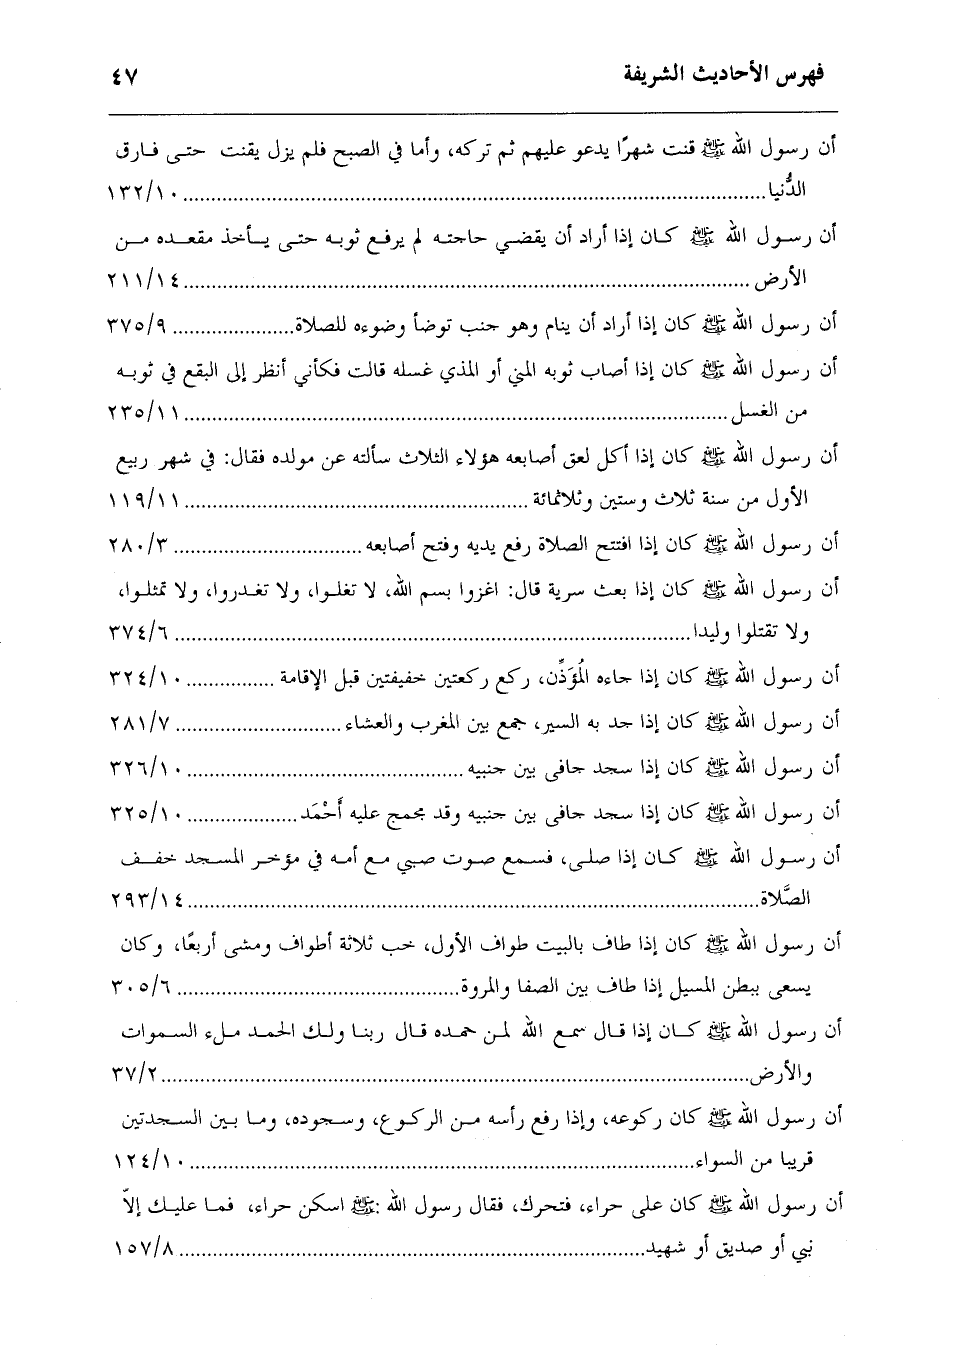 فهرس الأحاديث الشريفة ٤٧
أن رسول الله ﷺ قنت شهرًا يدعو عليهم ثم تركه، وأما في الصبح فلم يزل يقنت حتى فارق
الدُّنيا.......... ١٣٢/١٠
أن رسول الله ﷺ كان إذا أراد أن يقضي حاجته لم يرفع ثوبه حتى يأخذ مقعده من
الأرض.......... ٢١١/١٤
أن رسول الله ﷺ كان إذا أراد أن ينام وهو جنب توضأ وضوءه للصلاة.......... ٣٧٥/٩
أن رسول الله ﷺ كان إذا أصاب ثوبه المني أو المذي غسله قالت فكأني أنظر إلى البقع في ثوبه
من الغسل.......... ٢٣٥/١١
أن رسول الله ﷺ كان إذا أكل لعق أصابعه هؤلاء الثلاث سألته عن مولده فقال: في شهر ربيع
الأول من سنة ثلاث وستين وثلاثمائة.......... ١١٩/١١
أن رسول الله ﷺ كان إذا افتتح الصلاة رفع يديه وفتح أصابعه.......... ٢٨٠/٣
أن رسول الله ﷺ كان إذا بعث سرية قال: اغزوا بسم الله، لا تغلوا، ولا تغدروا، ولا تمثلوا،
ولا تقتلوا وليدا.......... ٣٧٤/٦
أن رسول الله ﷺ كان إذا جاءه المُؤَذِّن، ركع ركعتين خفيفتين قبل الإقامة.......... ٣٢٤/١٠
أن رسول الله ﷺ كان إذا جد به السير، جمع بين المغرب والعشاء.......... ٢٨١/٧
أن رسول الله ﷺ كان إذا سجد جافى بين جنبيه.......... ٣٢٦/١٠
أن رسول الله ﷺ كان إذا سجد جافى بين جنبيه وقد مجمج عليه أَحْمَد.......... ٣٢٥/١٠
أن رسول الله ﷺ كان إذا صلى، فسمع صوت صبي مع أمه في مؤخر المسجد خفف
الصَّلاة.......... ٢٩٣/١٤
أن رسول الله ﷺ كان إذا طاف بالبيت طواف الأول، خب ثلاثة أطواف ومشى أربعًا، وكان
يسعى ببطن المسيل إذا طاف بين الصفا والمروة.......... ٣٠٥/٦
أن رسول الله ﷺ كان إذا قال سمع الله لمن حمده قال ربنا ولك الحمد ملء السموات
والأرض.......... ٣٧/٢
أن رسول الله ﷺ كان ركوعه، وإذا رفع رأسه من الركوع، وسجوده، وما بين السجدتين
قريبا من السواء.......... ١٢٤/١٠
أن رسول الله ﷺ كان على حراء، فتحرك، فقال رسول الله :ﷺ اسكن حراء، فما عليك إلاّ
نبي أو صديق أو شهيد.......... ١٥٧/٨